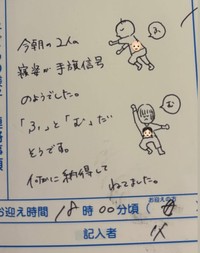 今朝の2人の
寝姿が手旗信号
のようでした。
「ふ」と「む」だ
そうです。
イ可かに納得して
ねてました。
ふ
む
お迎え時間 18時00分頃 (母
お迎えの方
記入者